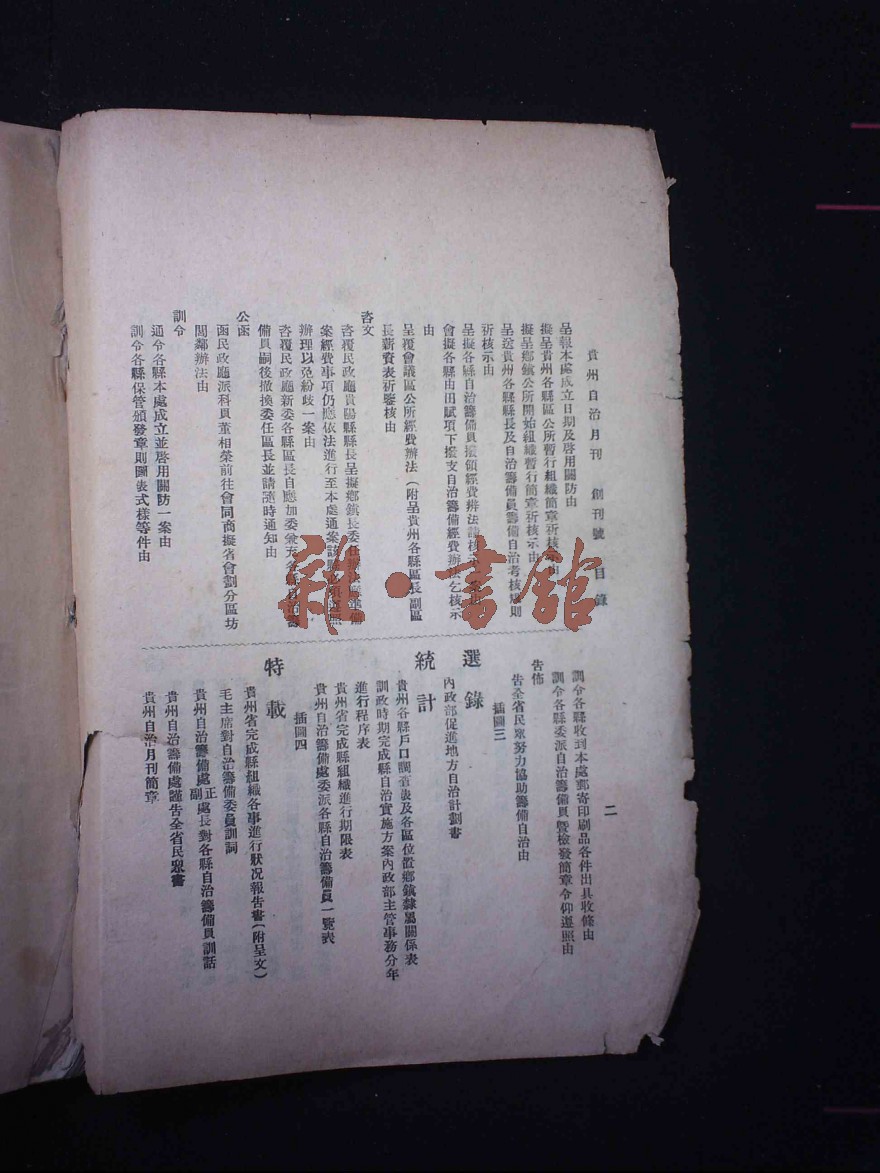 貴州自治月刊 創刊號 目錄
二
呈報本處成立日期及啓用關防由
擬呈貴州各縣區公所暫行組織簡章祈核示由
擬呈鄉鎮公所開始組織暫行簡章祈核示由
呈送貴州各縣縣長及自治籌備員籌備自治考核規則
祈核示由
呈擬各縣自治籌備員旅領經費辦法請核示
會擬各縣由田賦項下撥支自治籌備經費辦法乞核示
由
呈覆會議區公所經費辦法(附呈貴州各縣區長副區
長薪資表祈鑒核由
咨文
咨覆民政廳貴陽縣縣長呈擬鄉鎮長委任
案經費事項仍應依法進行至本處通案
辦理以免紛歧一案由
咨覆民政廳新委各縣區長自應加委兼充各縣自治籌
備員嗣後撤換委任區長並請隨時通知由
公函
函民政廳派科員董相榮前往會同商擬省會劃分區坊
閭鄰辦法由
訓令
通令各縣本處成立並啓用關防一案由
訓令各縣保管頒發章則圖表式樣等件由
訓令各縣收到本處郵寄印刷品各件出具收條由
訓令各縣委派自治籌備員暨檢發簡章令仰遵照由
告佈
告全省民眾努力協助籌備自治由
插圖三
選錄
內政部促進地方自治計劃書
統計
貴州各縣戶口調查表及各區位置鄉鎮隸屬關係表
訓政時期完成縣自治實施方案內政部主管事務分年
進行程序表
貴州省完成縣組織進行期限表
貴州自治籌備處委派各縣自治籌備員一覽表
插圖四
特載
貴州省完成縣組織各事進行狀况報告書(附呈文)
毛主席對自治籌備委員訓詞
貴州自治籌備處正副處長對各縣自治籌備員訓話
貴州自治籌備處謹告全省民眾書
貴州自治月刊簡章
雜·書館